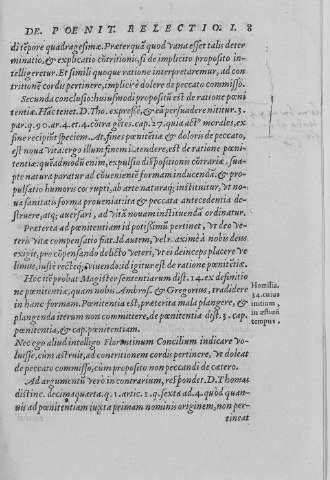 DE POENIT. RELECTIO. I. 8
di tẽpore quadragesimæ. Præterquã quod vana esset talis deter
minatio, & explicatio cõtritionis, si de implicito proposito in-
telligeretur. Et simili quoque ratione interpretaremur, ad con
tritionẽ cordis pertinere, implicitè dolere de peccato commisso.
Secunda conclusio: huiusmodi propositũ est de ratione pœni
tentiæ. Hac tenet. D. Tho. expressè, & eã persuadere nititur. 3.
par. q. 90. ar. 4. et. 4. cõtra gẽtes. cap. 27. quia actꝰ morales, ex
fine recipiũt speciem. At, fines pœnitẽtiæ & doloris de peccato,
est noua vita: ergo illum finem intendere, est de ratione pœni-
tentiæ: quẽadmodũ enim, expulsio dispositionis cõtrariæ, sua-
pte natura paratur ad cõuenientẽ formam inducendã. & pro-
pulsatio humoris corrupti, ab arte naturaq; instituitur, vt no-
ua sanitatis forma proueniat: ita & peccata antecedentia de-
struere, atq; auersari, ad vitã nouam instituendã ordinatur.
Præterea ad pœnitentiam id potissimũ pertinet, vt deo ve-
teris vitæ compensatio fiat. Id autem, vel maximè à nobis deus
exigit, pro cõpensando delicto veteri, vt ei deinceps placere ve
limus, iustè rectéq; viuendo: id igitur est de ratione pœnitẽtiæ.
Hoc ipsũ probat Magister sententiarum dist. 14. ex definitio
ne pœnitentiæ, quam nobis Ambros. & Gregorius, tradidere
in hanc formam. Pœnitentia est, præterita mala plangere, &
plangenda iterum non committere, de pœnitentia dist. 3. cap.
pœnitentia, & cap. pœnitentiam.
Homilia.
34. cuius
initium,
in æstiuũ
tempus.
Nec ego aliud intelligo Florentinum Concilium indicare vo-
luisse, cùm astruit, ad contritionem cordis pertinere, vt doleat
de peccato commisso, cùm proposito non peccandi de cætero.
Ad argumentũ verò in contrarium, respondet. D. Thomas
distinc. decimaquarta. q. 1. artic. 2. q. sexta ad. 4. quòd quan-
uis ad pœnitentiam iuxta primam nominis originem, non per-
tineat